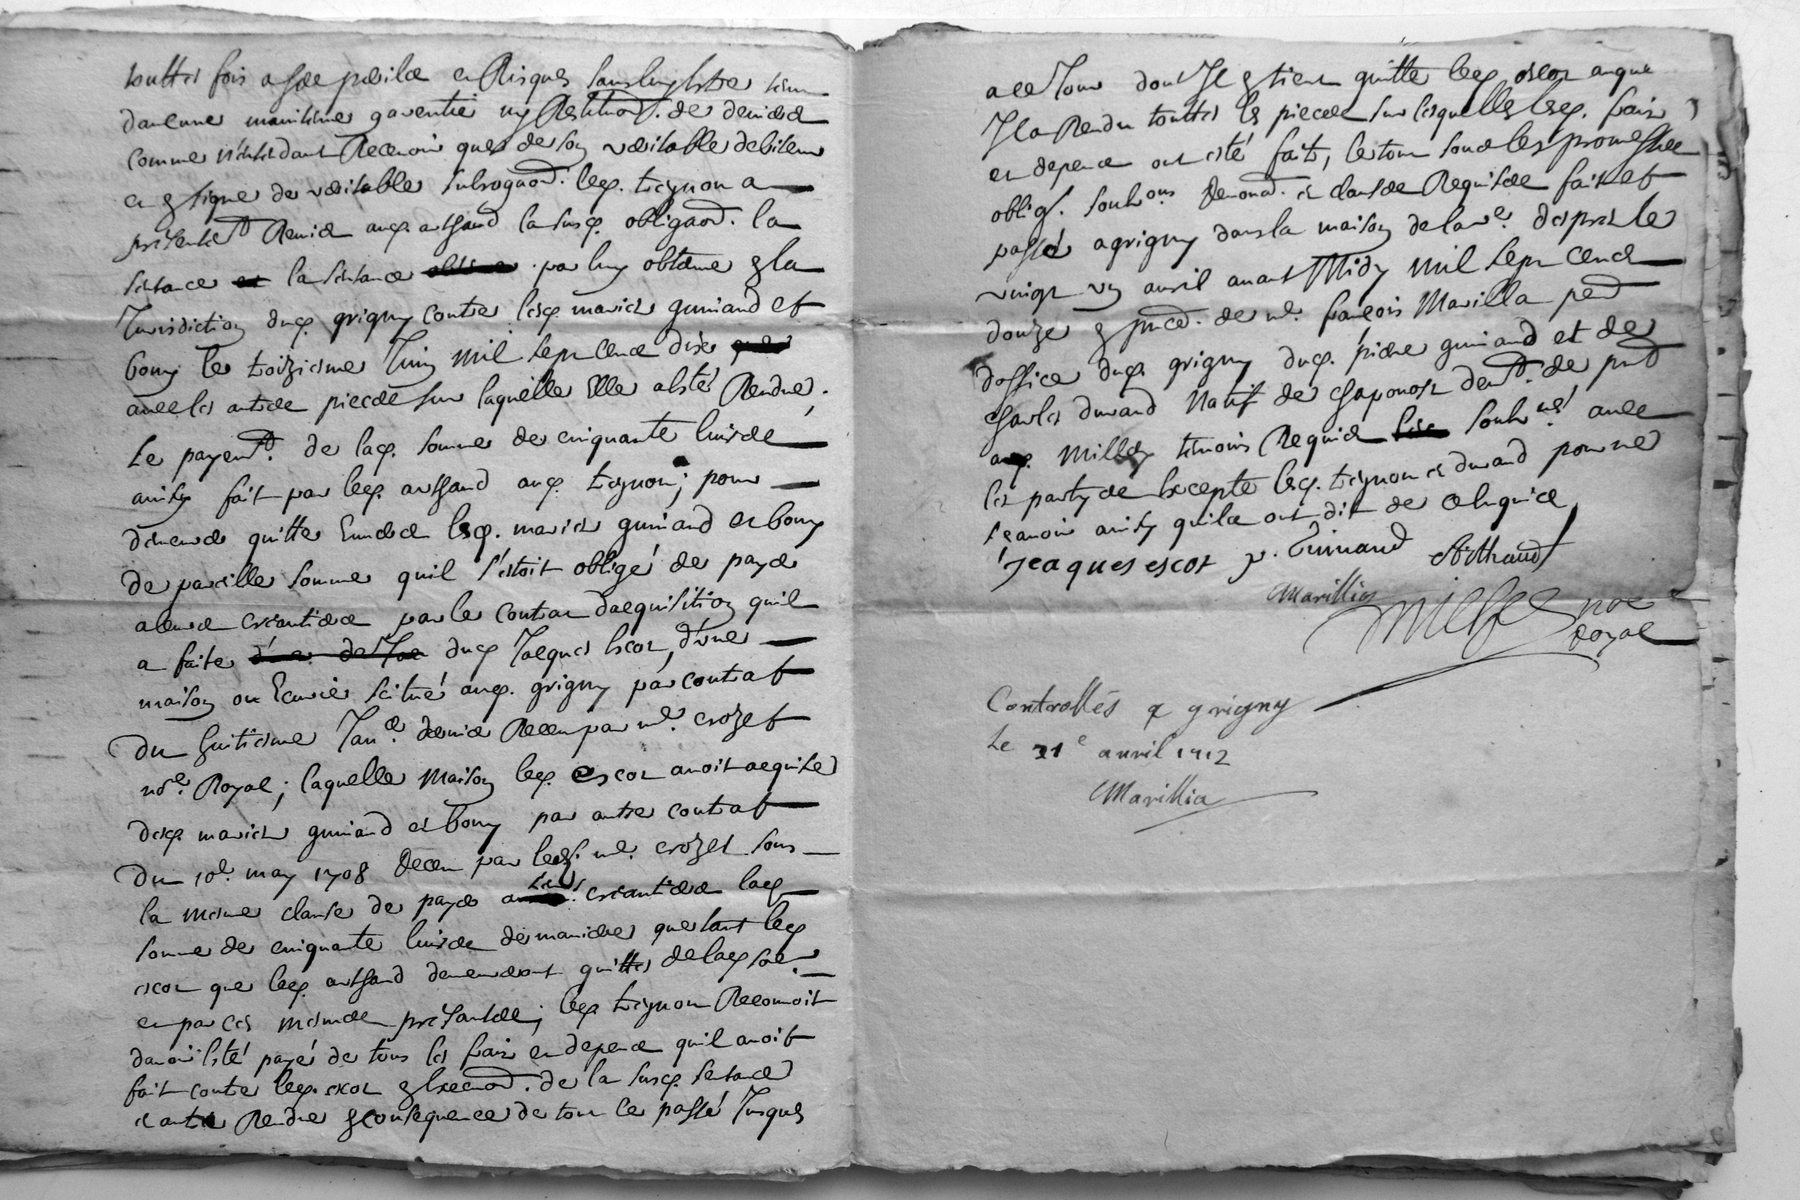 touttes fois a ses perils et Risques sans luy estre tenu
d'aucune maintenue garentie ny Restitu͠on. de deniers
comme n'entendant Recevoir que de son veritable debiteur
en signe de veritable subroga͠on. led. tignon a
presentem͠t Remis aud. arthaud la susd. obliga͠on. la
sentence par luy obtenue en la
Jurisdiction dud. grigny contre lesd. mariés guinand et
bony le troizieme Juin mil sept cent dix
avec les autres pieces sur laquelle Elle a esté Rendue,
Le payem͠t. de lad. somme de cinquante livres
ainsy fait par led. arthaud aud. tignon; pour
demeurer quitte Envers lesd. mariés guinand et bony
de pareille somme quil s'estoit obligé de payer
a leurs creantiers par le contrat d'acquisition quil
a faite dud. Jacques Escot, d'une
maison ou Ecurie scitué aud. grigny par contrat
du huitieme Jan.e dernier Receu par me. crozet
no.re Royal; laquelle maison led. escot avoit acquise
desd. mariés guinand et bony par autre contrat
du 10e. may 1708 Receu par led. me. crozet sous
la mesme clause de payer a leurs creantiers lad.
somme de cinquante livres de maniere que tant led.
escot que led. arthaud demeureront quittes de lad. som͠e.
en par ces mesmes presentes; led. tignon Reconnoit
d'avoir esté payé de tous les frais et depens quil avoit
fait contre led. escot en execu͠on. de la susd. sentence
et autre Rendue en consequence de tout le passé Jusques
a ce Jour dont Il se tient quitte led. escot auquel
Il a Rendu touttes les pieces sur lesquelles lesd. frais
et depens ont esté faits, le tout sous les promesses
oblig. soub͠ons Renon͠a. et clauses Requises fait et
passé a grigny dans la maison de la ve. despres le
vingt un avril avant Midy mil sept cent
douze en p͠nce. de me. françois Marillia p͠eur
d'office dud. grigny dud. pierre guinand et de
charles durand Natif de chaponost dem͠t. de p͠nt
aud. Millery temoins Requis soub͠nés avec
les partyes Excepte lesd. tignon et durand pour ne
sçavoir ainsy quils ont dit de ce Enquis,
Jeaques escot p. Guinand Arthaud
Marillia
no.re
Royal
Controllés a grigny
Le 21e avril 1712
Marillia